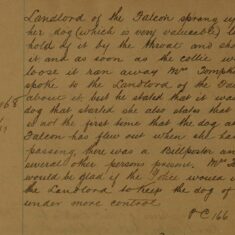 Landlord of the Falcon sprung up
her dog (which is very valueable) to
hold of it by the throat and sho
it and as soon as the collie w
loose it ran away Mrs Tomph
spoke to the Landlord of the Fa
about it but he stated that it was
dog that started she also states that
is not the first time that the dog a
Falcon has flew out when she ha
passing, there was a Billposter and
several other persons present. Mrs T
would be glad if the Police would
the Landlord to keep the dog
under more control
PC 166